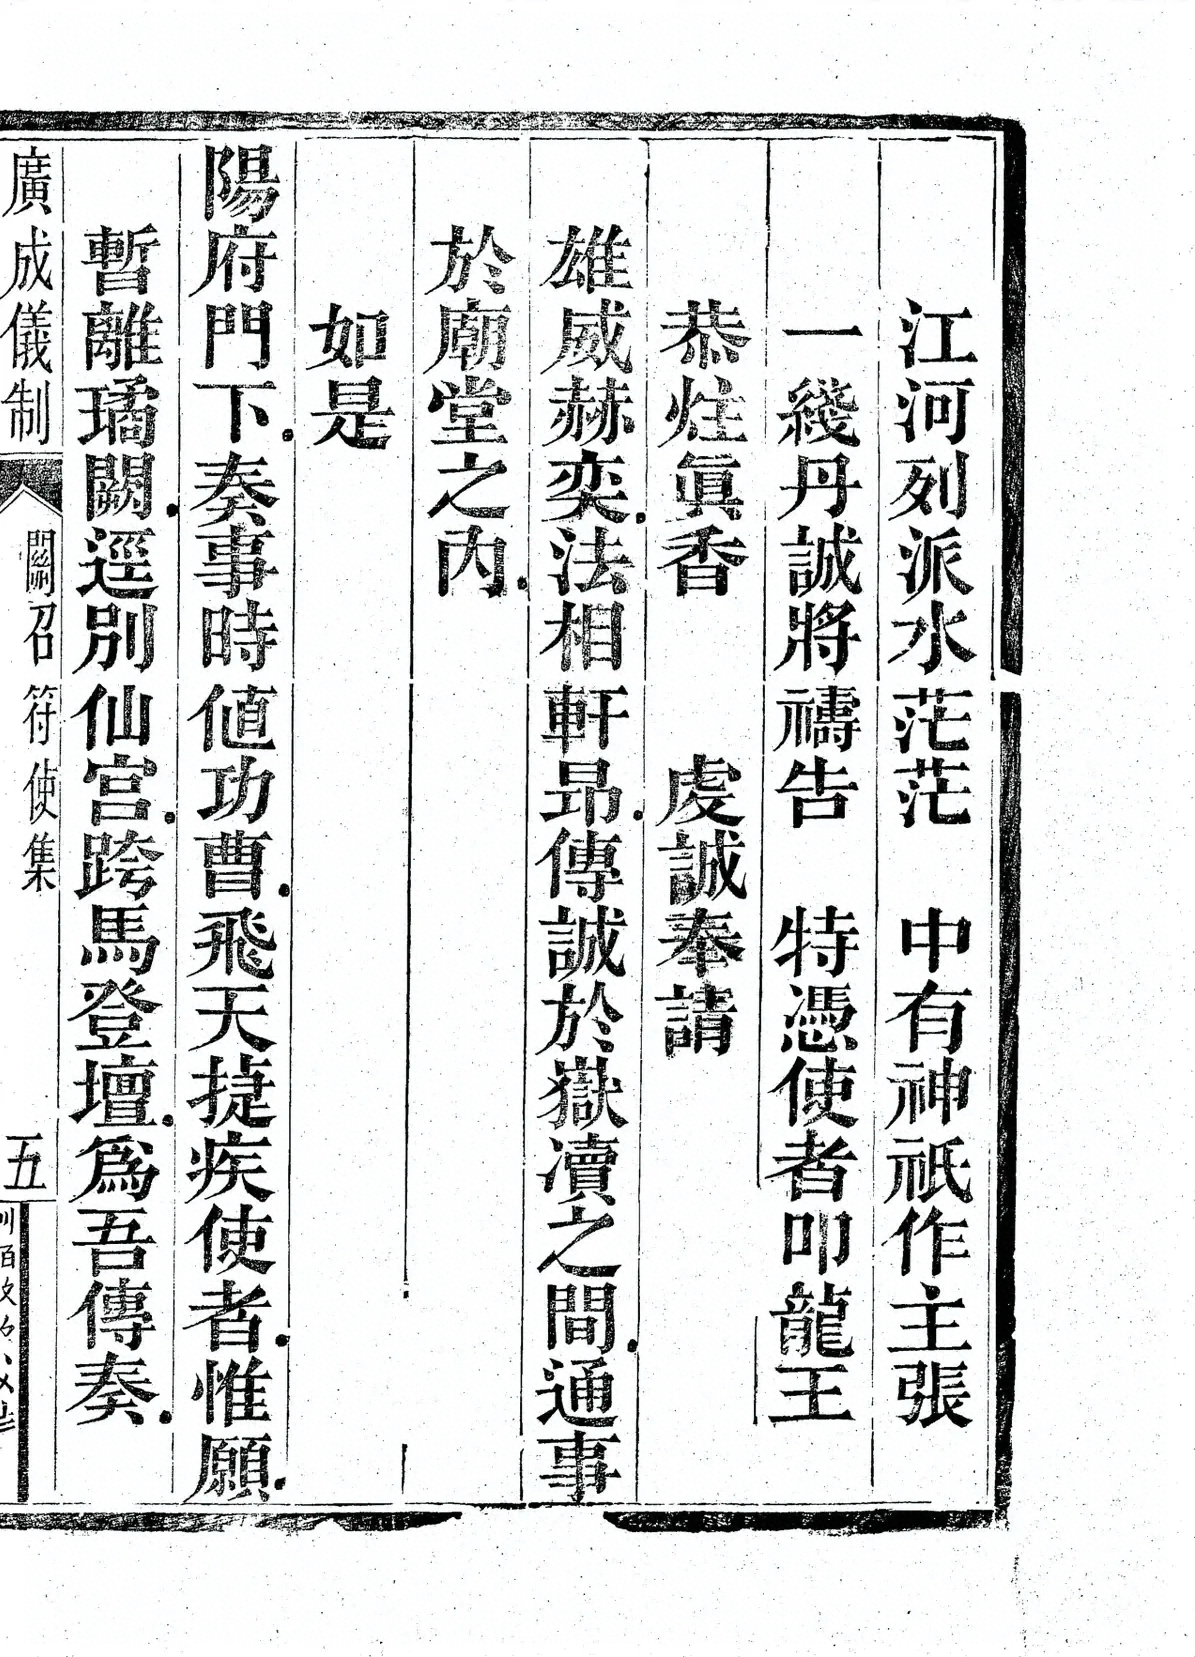 江河列派水茫茫　中有神祇作主張
一綫丹誠將禱告　特憑使者叩龍王
恭炷眞香　　虔誠奉請
雄威赫奕.法相軒昂.傳誠於嶽瀆之間.通事
於廟堂之內.
如是
陽府門下.奏事時值功曹.飛天捷疾使者.惟願.
暫離璚闕.逕別仙宮.跨馬登壇.爲吾傳奏.
廣成儀制　關召符使集　五